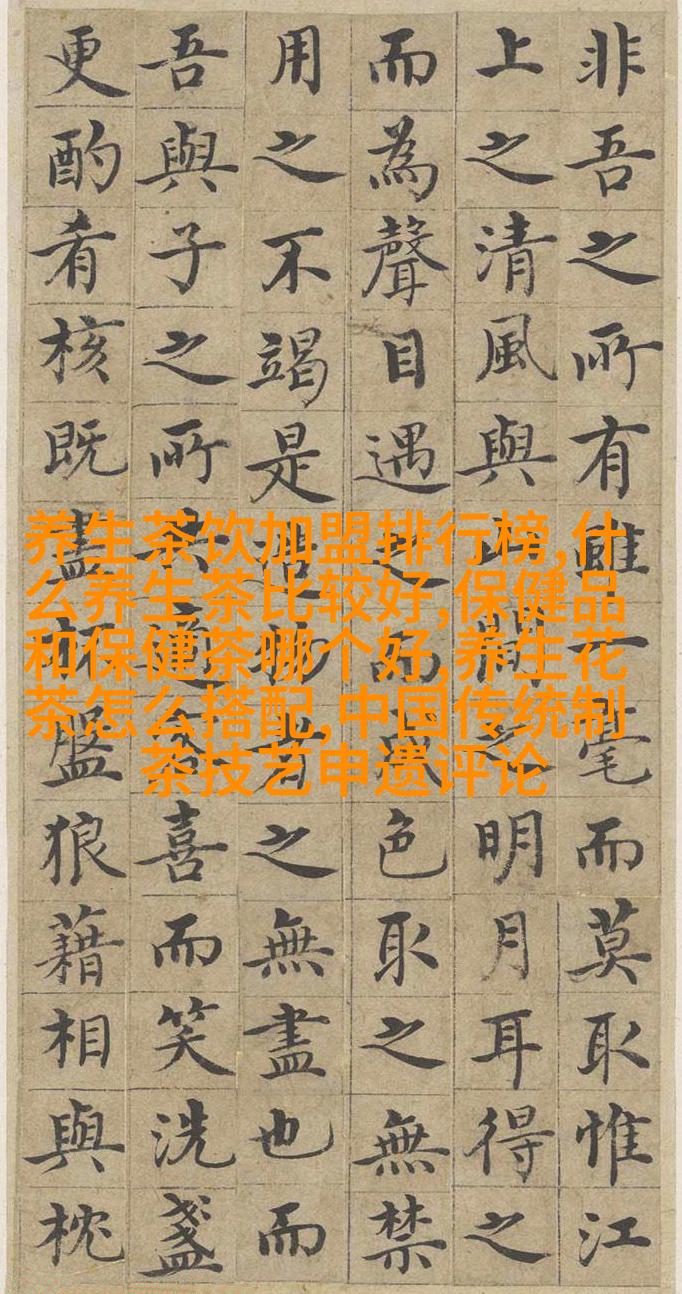 非吾之所有雖一毫而莫取惟江
上之清風與山間之明月耳得之
而為聲目遇之而成色取之無禁
用之不竭是造物者之無盡也而
吾與子之所共適客喜而笑洗盞
更酌肴核既盡杯盤狼藉相與枕
养生茶饮加盟排行榜,什
么养生茶比较好,保健品
和保健茶哪个好,养生花
茶怎么搭配,中国传统制
茶技艺申遗评论